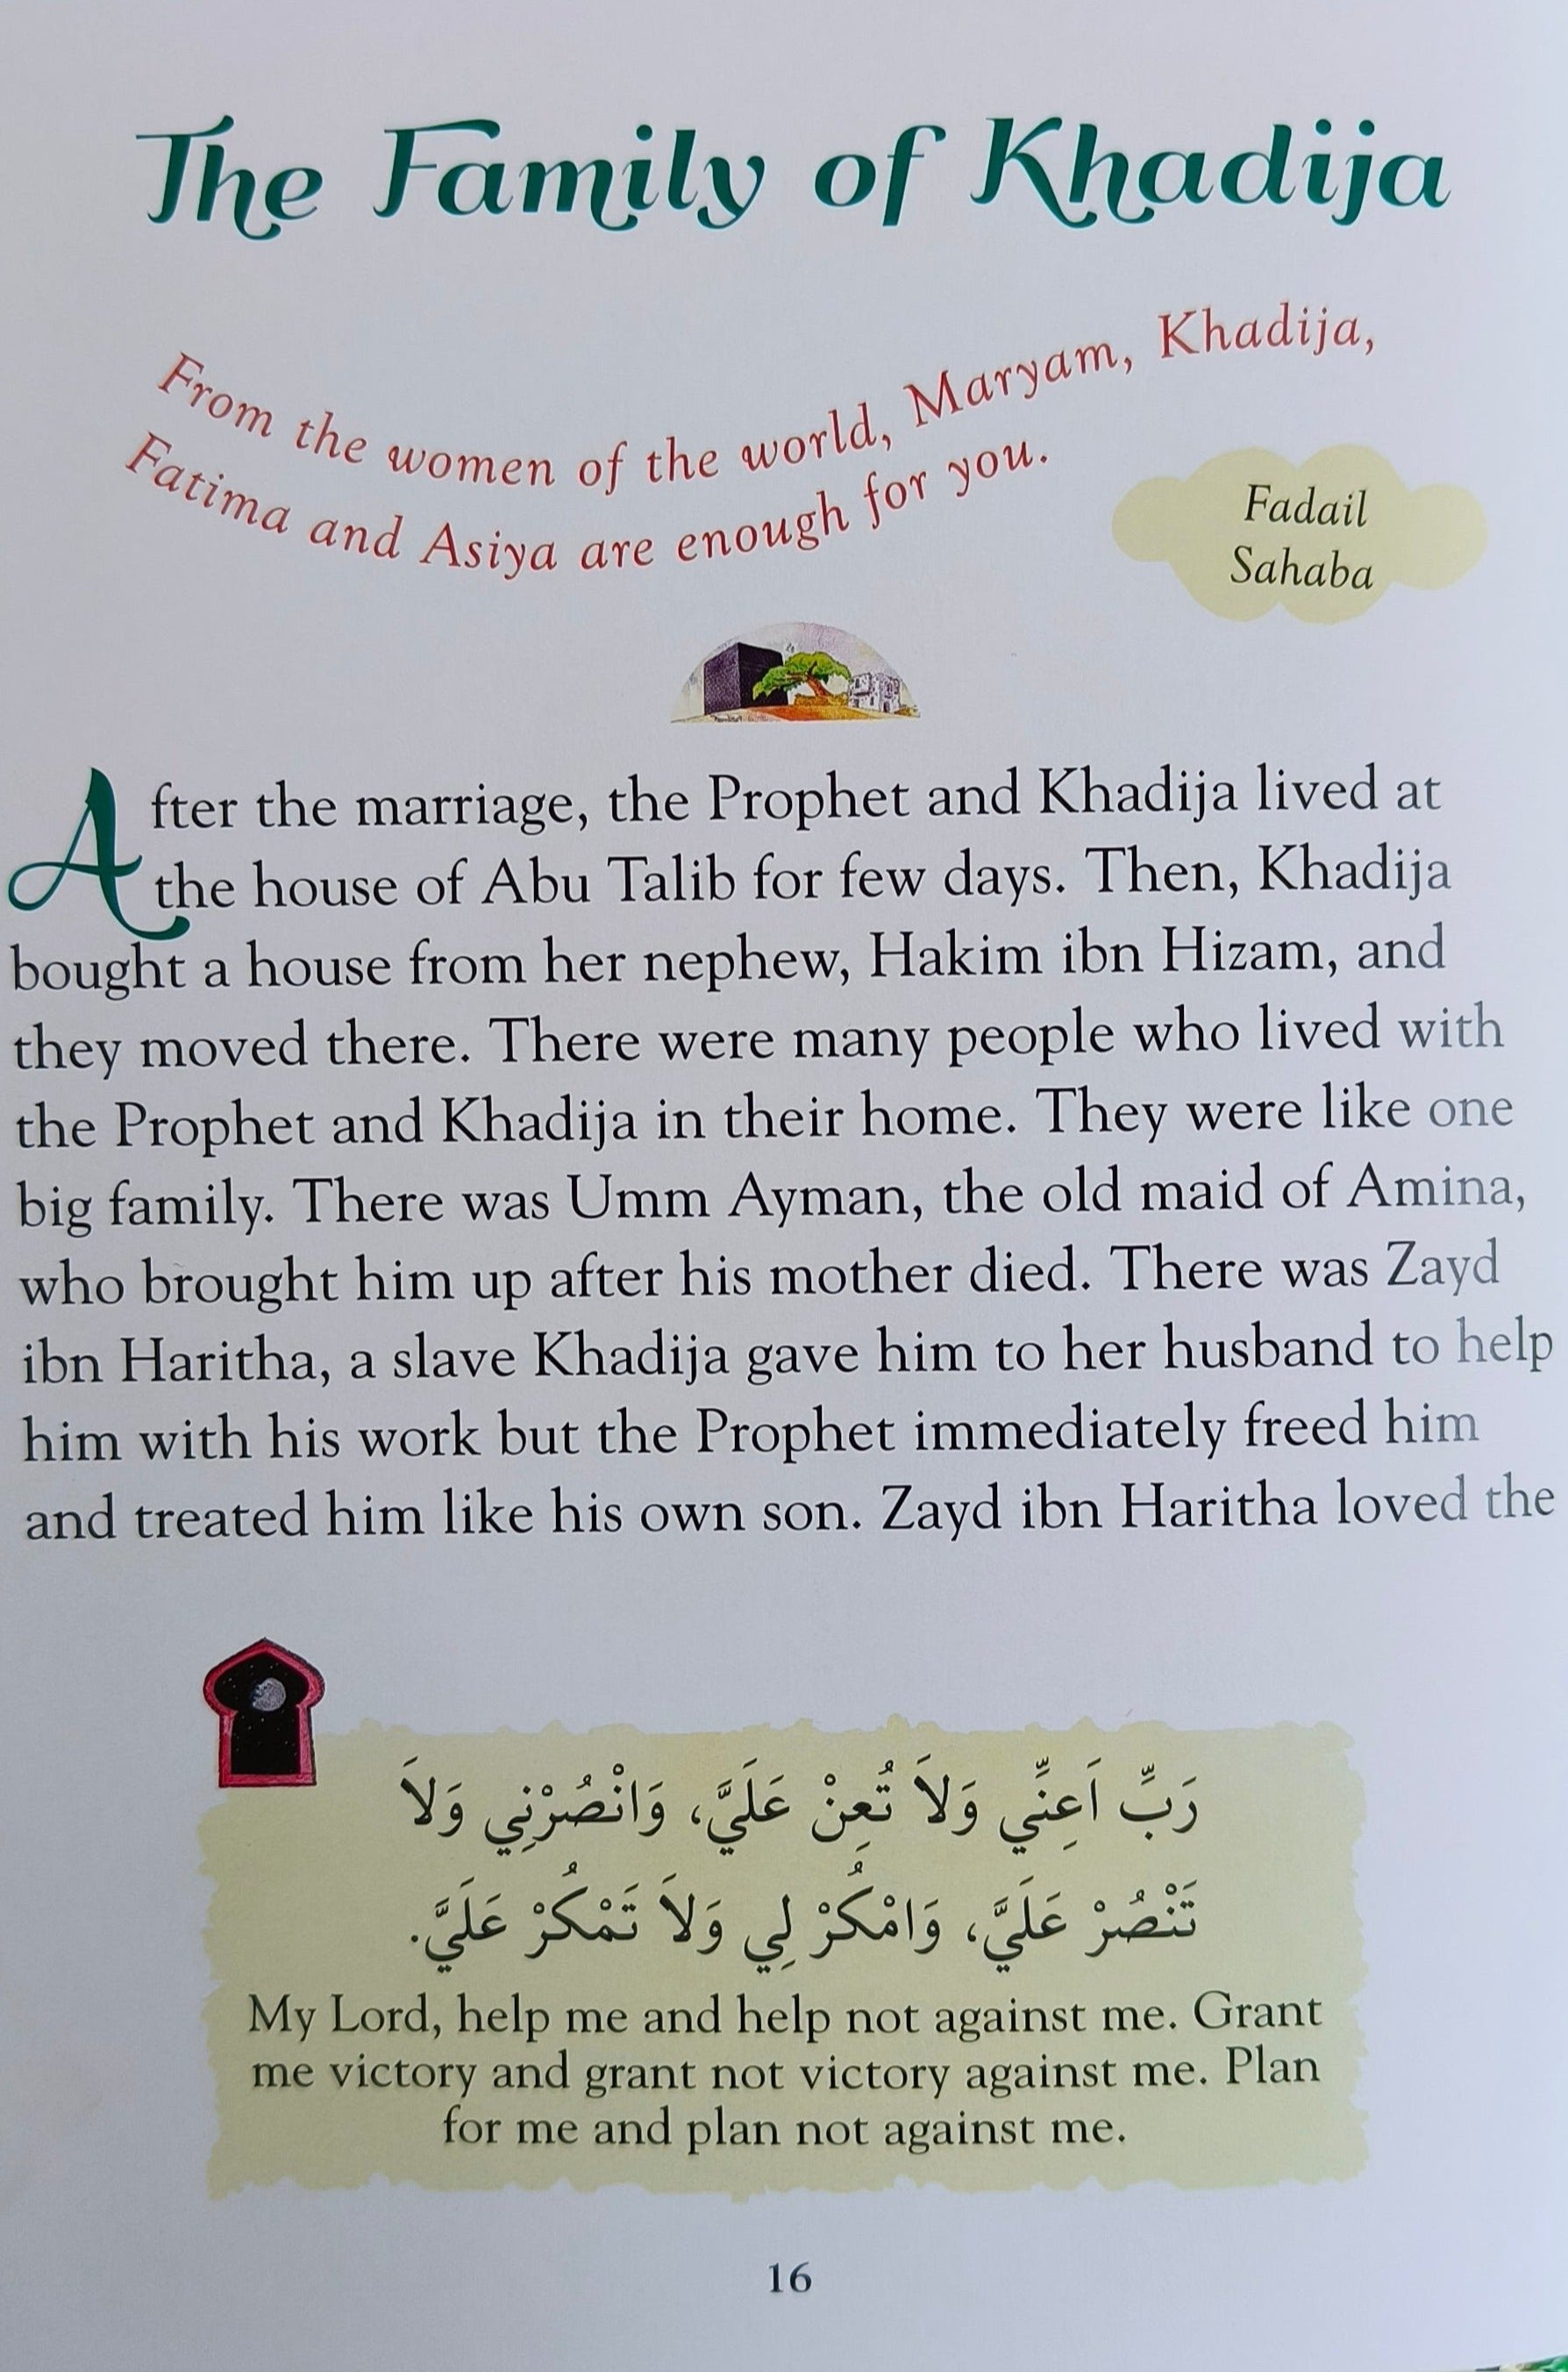 The Family of Khadija
From the women of the world, Maryam, Khadija,
Fatima and Asiya are enough for you.
Fadail
Sahaba
After the marriage, the Prophet and Khadija lived at
the house of Abu Talib for few days. Then, Khadija
bought a house from her nephew, Hakim ibn Hizam, and
they moved there. There were many people who lived with
the Prophet and Khadija in their home. They were like one
big family. There was Umm Ayman, the old maid of Amina,
who brought him up after his mother died. There was Zayd
ibn Haritha, a slave Khadija gave him to her husband to help
him with his work but the Prophet immediately freed him
and treated him like his own son. Zayd ibn Haritha loved the
رَبِّ اَعِنِّي وَلاَ تُعِنْ عَلَيَّ، وَانْصُرْنِي وَلاَ
تَنْصُرْ عَلَيَّ، وَامْكُرْ لِي وَلاَ تَمْكُرْ عَلَيَّ.
My Lord, help me and help not against me. Grant
me victory and grant not victory against me. Plan
for me and plan not against me.
16